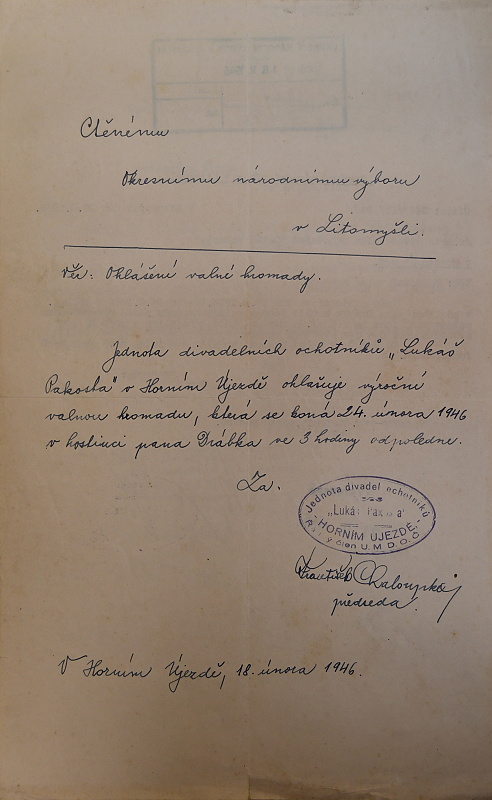 Ctěnému
Okresnímu národnímu výboru
v Litomyšli.
Věc: Ohlášení valné hromady.
Jednota divadelních ochotníků „Lukáš
Pakosta" v Horním Újezdě ohlašuje výroční
valnou hromadu, která se koná 24. února 1946
v hostinci pana Drábka ve 3 hodiny odpoledne.
Za.
Jednota divadel. ochotníků
„Luká Pak a"
HORNÍM ÚJEZDĚ.
člen U.M.D.O.Č.
František Chaloupka
předseda.
V Horním Újezdě, 18. února 1946.